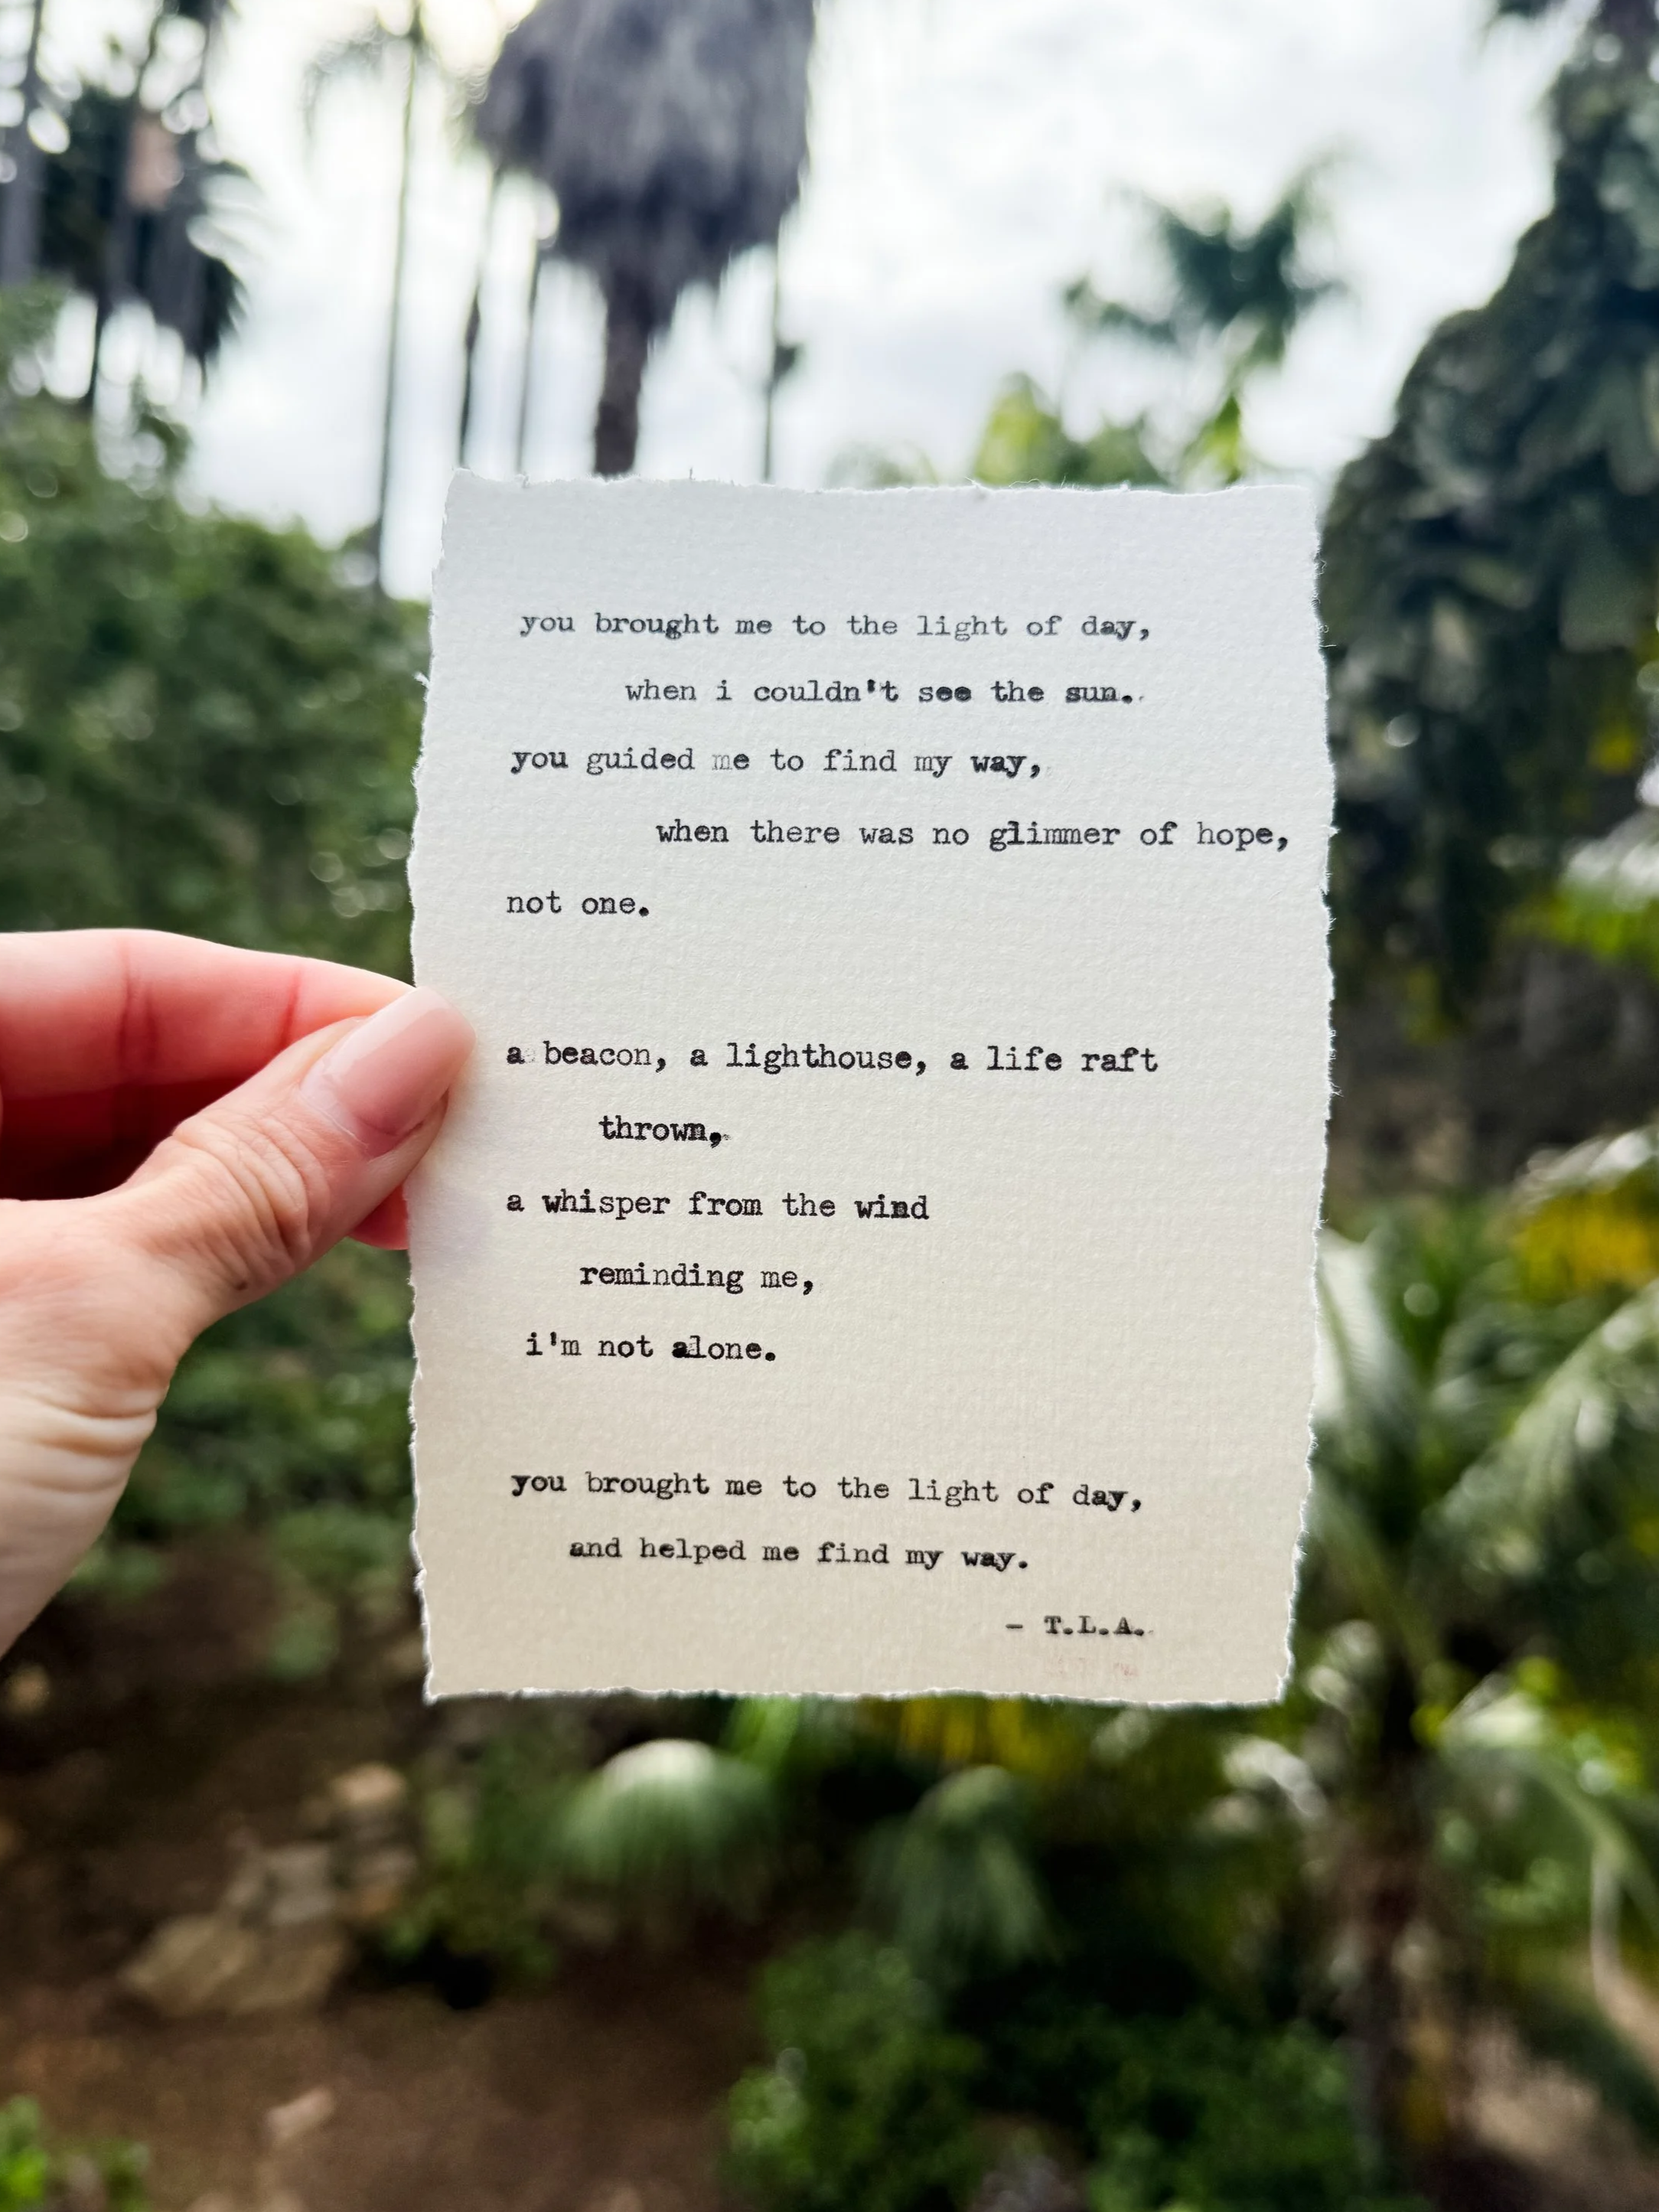 you brought me to the light of day,
when i couldn't see the sun.
you guided me to find my way,
when there was no glimmer of hope,
not one.
a beacon, a lighthouse, a life raft
thrown,
a whisper from the wind
reminding me,
i'm not alone.
you brought me to the light of day,
and helped me find my way.
- T.L.A.